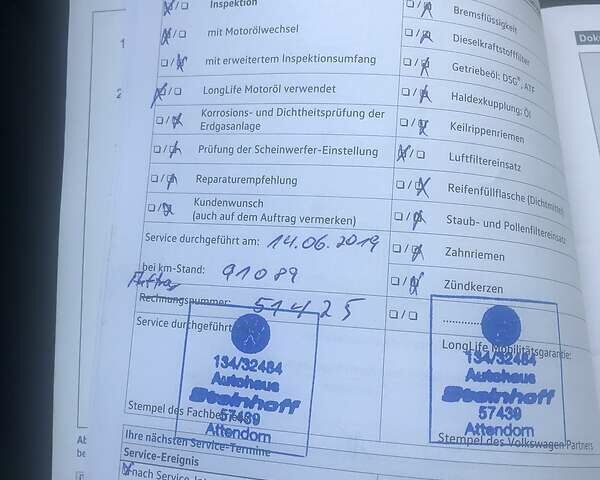 Inspektion
mit Motorölwechsel
mit erweitertem Inspektionsumfang
LongLife Motoröl verwendet
Korrosions- und Dichtheitsprüfung der
Erdgasanlage
Prüfung der Scheinwerfer-Einstellung
Reparaturempfehlung
Kundenwunsch
(auch auf dem Auftrag vermerken)
Service durchgeführt am: 14.06.2019
bei km-Stand: 91089
Auftrag
Rechnungsnummer: 51425
Service durchgeführt
134/32484
Autohaus
Steinhoff
57439
Attendorn
Stempel des
Ihre nächsten Service-Termine
Service-Ereignis
nach Service-
Bremsflüssigkeit
Dieselkraftstofffilter
Getriebeöl: DSG®, ATF
Haldexkupplung: Öl
Keilrippenriemen
Luftfiltereinsatz
Reifenfüllflasche (Dichtmittel)
Staub- und Pollenfiltereinsatz
Zahnriemen
Zündkerzen
LongLife Mobilitätsgarantie:
134/32484
Autohaus
Steinhoff
57439
Attendorn
Stempel des Volkswagen Partners
Doku
1
2
Ab
be